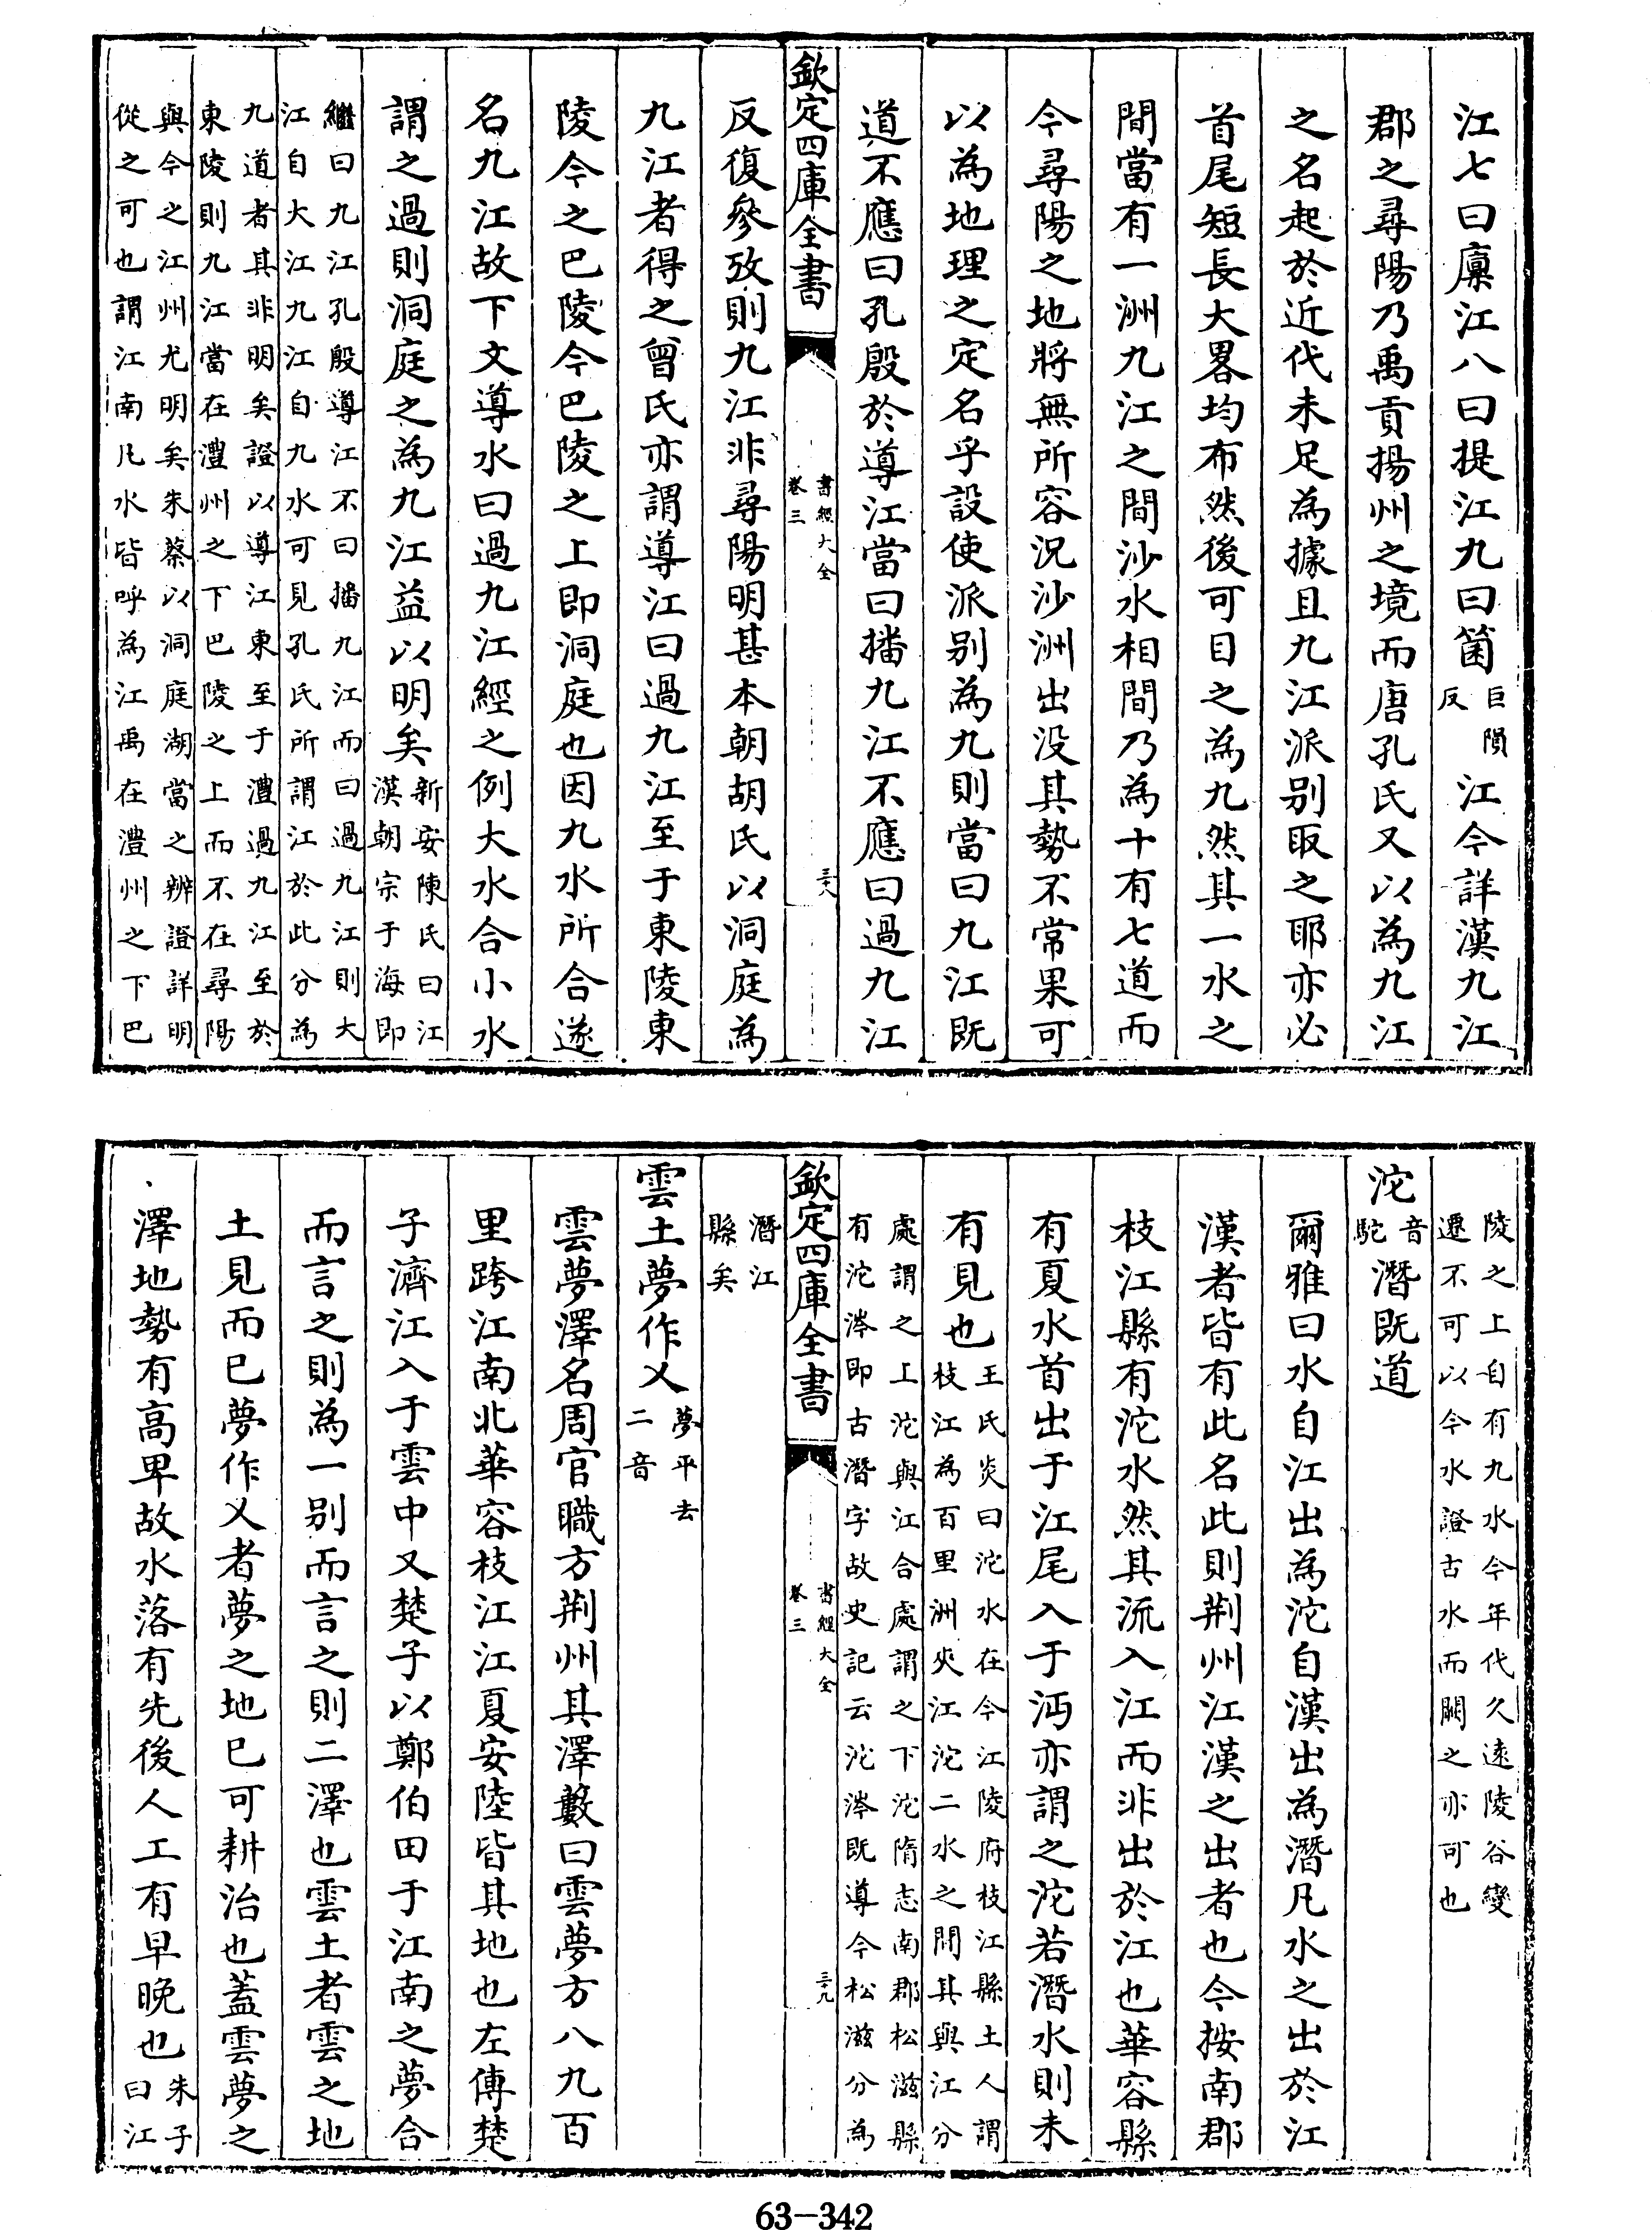 江七曰廩江八曰提江九曰箘巨隕反江今詳漢九江
郡之尋陽乃禹貢揚州之境而唐孔氏又以為九江
之名起於近代未足為據且九江派别取之耶亦必
首尾短長大畧均布然後可目之為九然其一水之
間當有一洲九江之間沙水相間乃為十有七道而
今尋陽之地將無所容況沙洲出没其勢不常果可
以為地理之定名乎設使派别為九則當曰九江既
道不應曰孔殷於導江當曰播九江不應曰過九江
欽定四庫全書
書經大全
卷三
三十八
反復參攷則九江非尋陽明甚本朝胡氏以洞庭為
九江者得之曾氏亦謂導江曰過九江至于東陵東
陵今之巴陵今巴陵之上即洞庭也因九水所合遂
名九江故下文導水曰過九江經之例大水合小水
謂之過則洞庭之為九江益以明矣
新安陳氏曰江
漢朝宗于海即
繼曰九江孔殷導江不曰播九江而曰過九江則大
江自大江九江自九水可見孔氏所謂江於此分為
九道者其非明矣證以導江東至于澧過九江至於
東陵則九江當在澧州之下巴陵之上而不在尋陽
與今之江州尤明矣朱蔡以洞庭湖當之辨證詳明
從之可也謂江南凡水皆呼為江禹在澧州之下巴
陵之上自有九水今年代久遠陵谷變
遷不可以今水證古水而闕之亦可也
沱音駝潛既道
爾雅曰水自江出為沱自漢出為潛凡水之出於江
漢者皆有此名此則荆州江漢之出者也今按南郡
枝江縣有沱水然其流入江而非出於江也華容縣
有夏水首出于江尾入于沔亦謂之沱若潛水則未
有見也
王氏炎曰沱水在今江陵府枝江縣土人謂
枝江為百里洲夾江沱二水之間其與江分
處謂之上沱與江合處謂之下沱隋志南郡松滋縣
有沱涔即古潛字故史記云沱涔既導今松滋分為
欽定四庫全書
書經大全
卷三
三十九
潛江
縣矣
雲土夢作乂夢平去二音
雲夢澤名周官職方荆州其澤藪曰雲夢方八九百
里跨江南北華容枝江江夏安陸皆其地也左傳楚
子濟江入于雲中又楚子以鄭伯田于江南之夢合
而言之則為一别而言之則二澤也雲土者雲之地
土見而已夢作乂者夢之地已可耕治也蓋雲夢之
澤地勢有高卑故水落有先後人工有早晚也
朱子
曰江
63-342